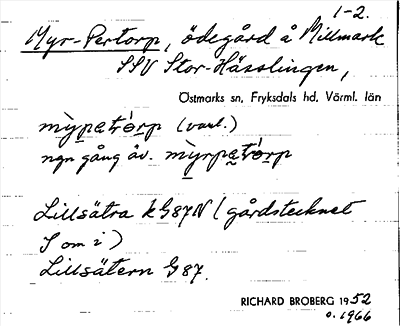 1-2.
Myr-Pertorp, ödegård å Millmark
SSV Stor-Hässlingen,
Östmarks sn, Fryksdals hd, Värml. län
mỳpatrórp (vanl.)
ngn gång äv. mỳrpatórp
Lillsätra k G87N (gårdstecknet
S om i)
Lillsätern G87.
RICHARD BROBERG 1952
o. 1966